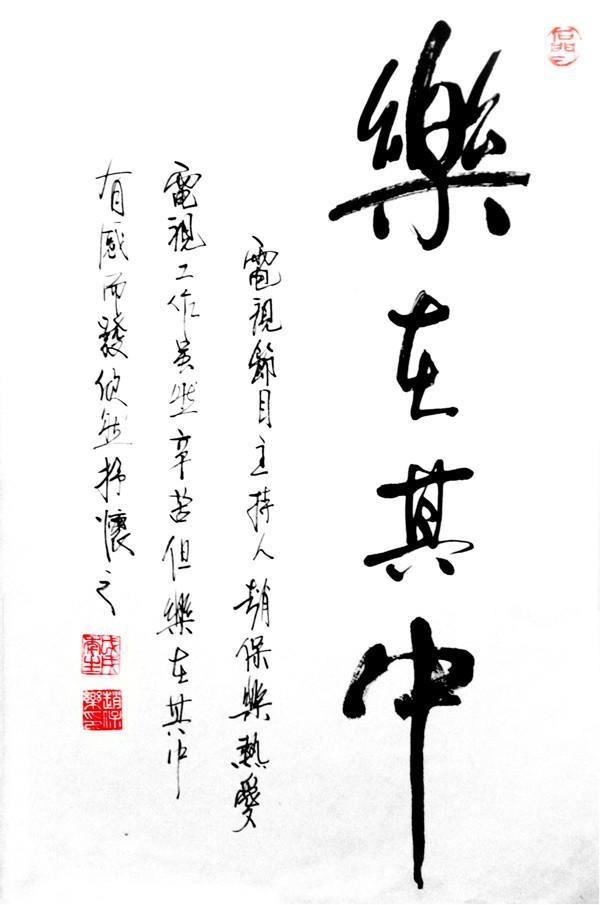 樂在其中
電視節目主持人趙保樂熱愛
電視工作虽然辛苦但樂在其中
有感而發偵然抒懷之
趙保樂